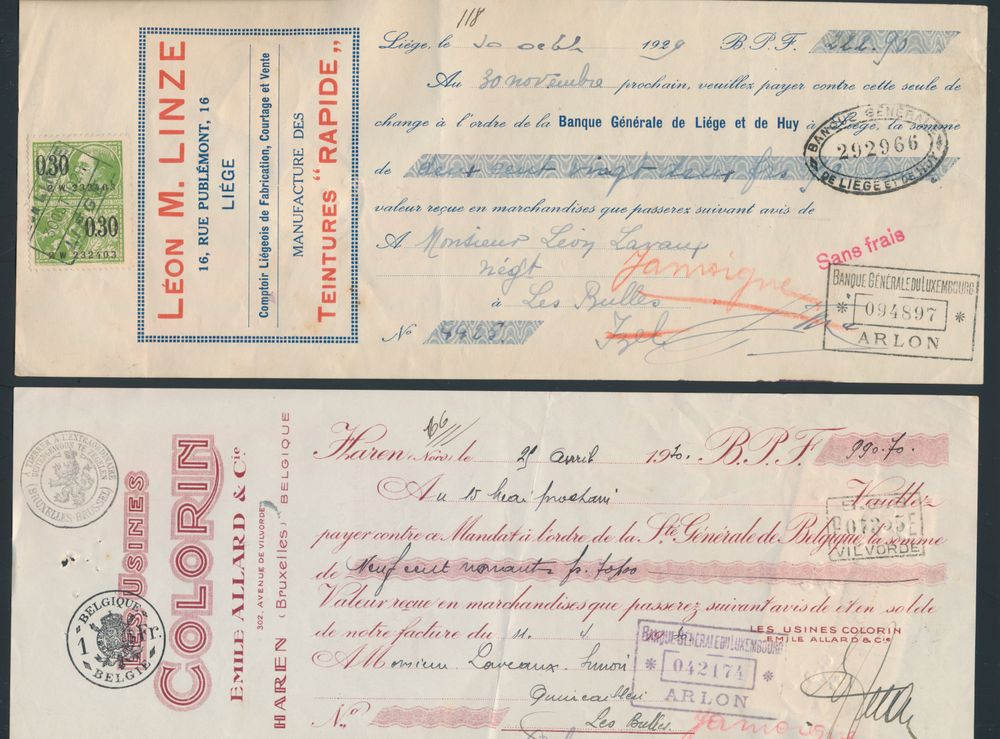 118
Liége, le 30 octb 1929 B.P.F. 222.90
Au 30 novembre prochain, veuillez payer contre cette seule de
change à l'ordre de la Banque Générale de Liége et de Huy à Liége, la somme
de deux cent vingt deux frs
valeur reçue en marchandises que passerez suivant avis de
A Monsieur Léon Lavaux
négt
à Les Bulles
Jamoigne
Izel
No
LÉON M. LINZE
16, RUE PUBLÉMONT, 16
LIÉGE
Comptoir Liégeois de Fabrication, Courtage et Vente
MANUFACTURE DES
TEINTURES "RAPIDE„
0.30
2 W 232403
0.30
2 W 232403
BANQUE GÉNÉRALE
292966
DE LIEGE ET DE HUY
Sans frais
BANQUE GÉNÉRALE DU LUXEMBOURG
* 094897 *
ARLON
66
Haren (Nord) le 25 avril 1930. B.P.F. 990.70.
Au 15 mai prochain Veuillez
payer contre ce Mandat à l'ordre de la Sté Générale de Belgique, la somme
de Neuf cent nonante fr. 70/00
Valeur reçue en marchandises que passerez suivant avis de et en solde
de notre facture du
LES USINES COLORIN
EMILE ALLARD & Cie
A Monsieur Laveaux-Simon
Quincaillier
Les Bulles.
Jamoigne
No
LES USINES
COLORIN
EMILE ALLARD & Cie
302, AVENUE DE VILVORDE
HAREN (Bruxelles) BELGIQUE
TIMBRER A L'EXTRAORDINAIRE
(BRUXELLES-BRUSSEL)
BELGIQUE
1 Fr.
BELGIE
VILVORDE
BANQUE GÉNÉRALE DU LUXEMBOURG
* 042174 *
ARLON